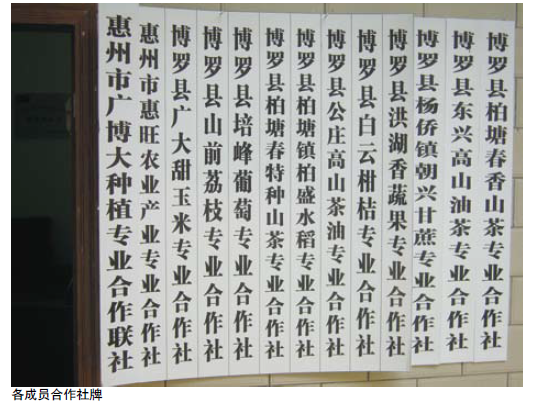 惠州市广博大种植专业合作联社
惠州市惠旺农业产业专业合作社
博罗县广大甜玉米专业合作社
博罗县山前荔枝专业合作社
博罗县培峰葡萄专业合作社
博罗县柏塘春特种山茶专业合作社
博罗县柏塘镇柏盛水稻专业合作社
博罗县公庄高山茶油专业合作社
博罗县白云柑桔专业合作社
博罗县洪湖香蔬果专业合作社
博罗县杨侨镇朝兴甘蔗专业合作社
博罗县东兴高山油茶专业合作社
博罗县柏塘春香山茶专业合作社
各成员合作社牌